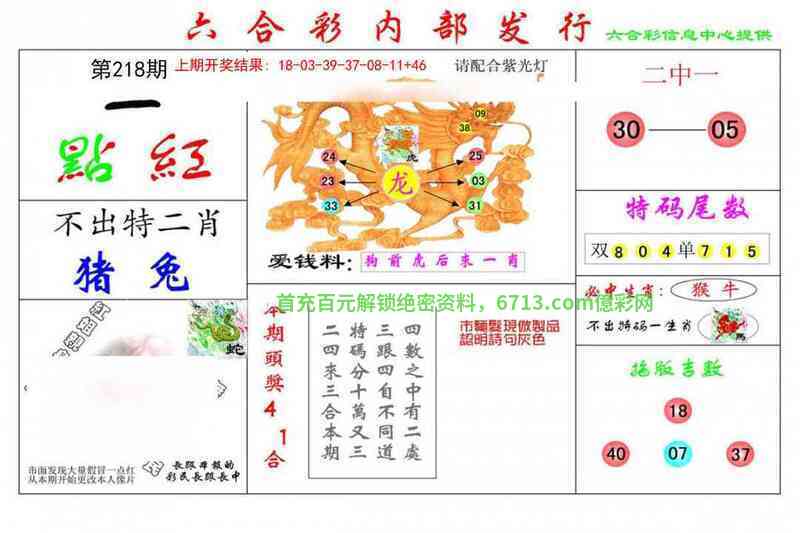 六合彩内部发行
六合彩信息中心提供
第218期
上期开奖结果：18-03-39-37-08-11+46
请配合紫光灯
一
點 紅
不出特二肖
猪 兔
蛇
市面发现大量假冒一点红
从本期开始更改本人像片
長眼單報的
彩民長眼長中
09
38
虎
24
25
23
龙
03
33
31
爱钱料：狗前虎后来一肖
首充百元解锁绝密资料，6713.com億彩网
本期頭獎41合
四數之中有二處
三跟四自不同道
特碼分十萬又三
二四來三合本期
市麵髮現做製品
認明詩句灰色
二中一
30
05
特码尾数
双804单715
必中生肖：猴 牛
不出特码一生肖
馬
拖版吉数
18
40
07
37